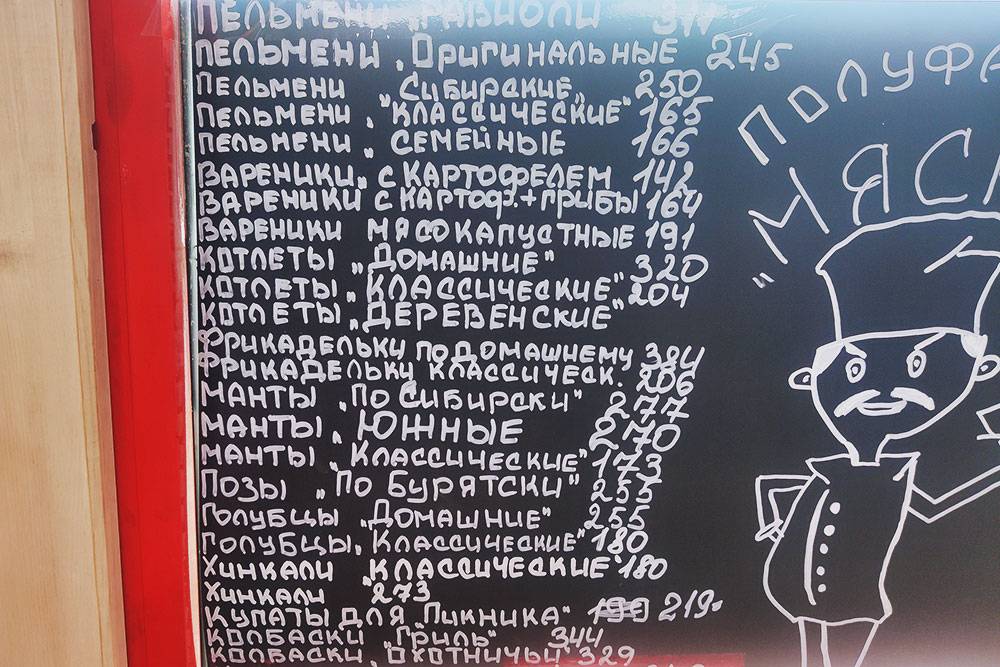 ПЕЛЬМЕНИ РАВИОЛИ
ПЕЛЬМЕНИ „Оригинальные 245
ПЕЛЬМЕНИ „Сибирские„ 250
ПЕЛЬМЕНИ „КЛАССИЧЕСКИЕ" 165
ПЕЛЬМЕНИ „ СЕМЕЙНЫЕ 166
ВАРЕНИКИ „ С КАРТОФЕЛЕМ 142
ВАРЕНИКИ С КАРТОФ.+ГРИБЫ 164
ВАРЕНИКИ МЯСОКАПУСТНЫЕ 191
КОТЛЕТЫ „ДОМАШНИЕ" 320
КОТЛЕТЫ „КЛАССИЧЕСКИЕ" 204
КОТЛЕТЫ „ДЕРЕВЕНСКИЕ"
ФРИКАДЕЛЬКИ ПОДОМАШНЕМУ 384
ФРИКАДЕЛЬКИ КЛАССИЧЕСК. 206
МАНТЫ „ПО СИБИРСКИ" 277
МАНТЫ „ ЮЖНЫЕ 270
МАНТЫ „КЛАССИЧЕСКИЕ" 173
ПОЗЫ „ПО БУРЯТСКИ" 255
ГОЛУБЦЫ „ДОМАШНИЕ" 255
ГОЛУБЦЫ „КЛАССИЧЕСКИЕ" 180
ХИНКАЛИ "КЛАССИЧЕСКИЕ" 180
ХИНКАЛИ 273
КУПАТЫ ДЛЯ „ПИКНИКА" 219-
КОЛБАСКИ „ГРИЛЬ" 344
КОЛБАСКИ „ОХОТНИЧЬИ 329
ПОЛУФА
„МЯС